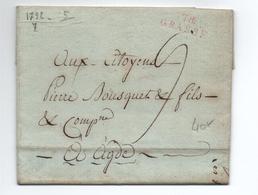 1792
78
GRASSE
Aux Citoyens
Pierre Bousquet & fils
& Compne
A Agde